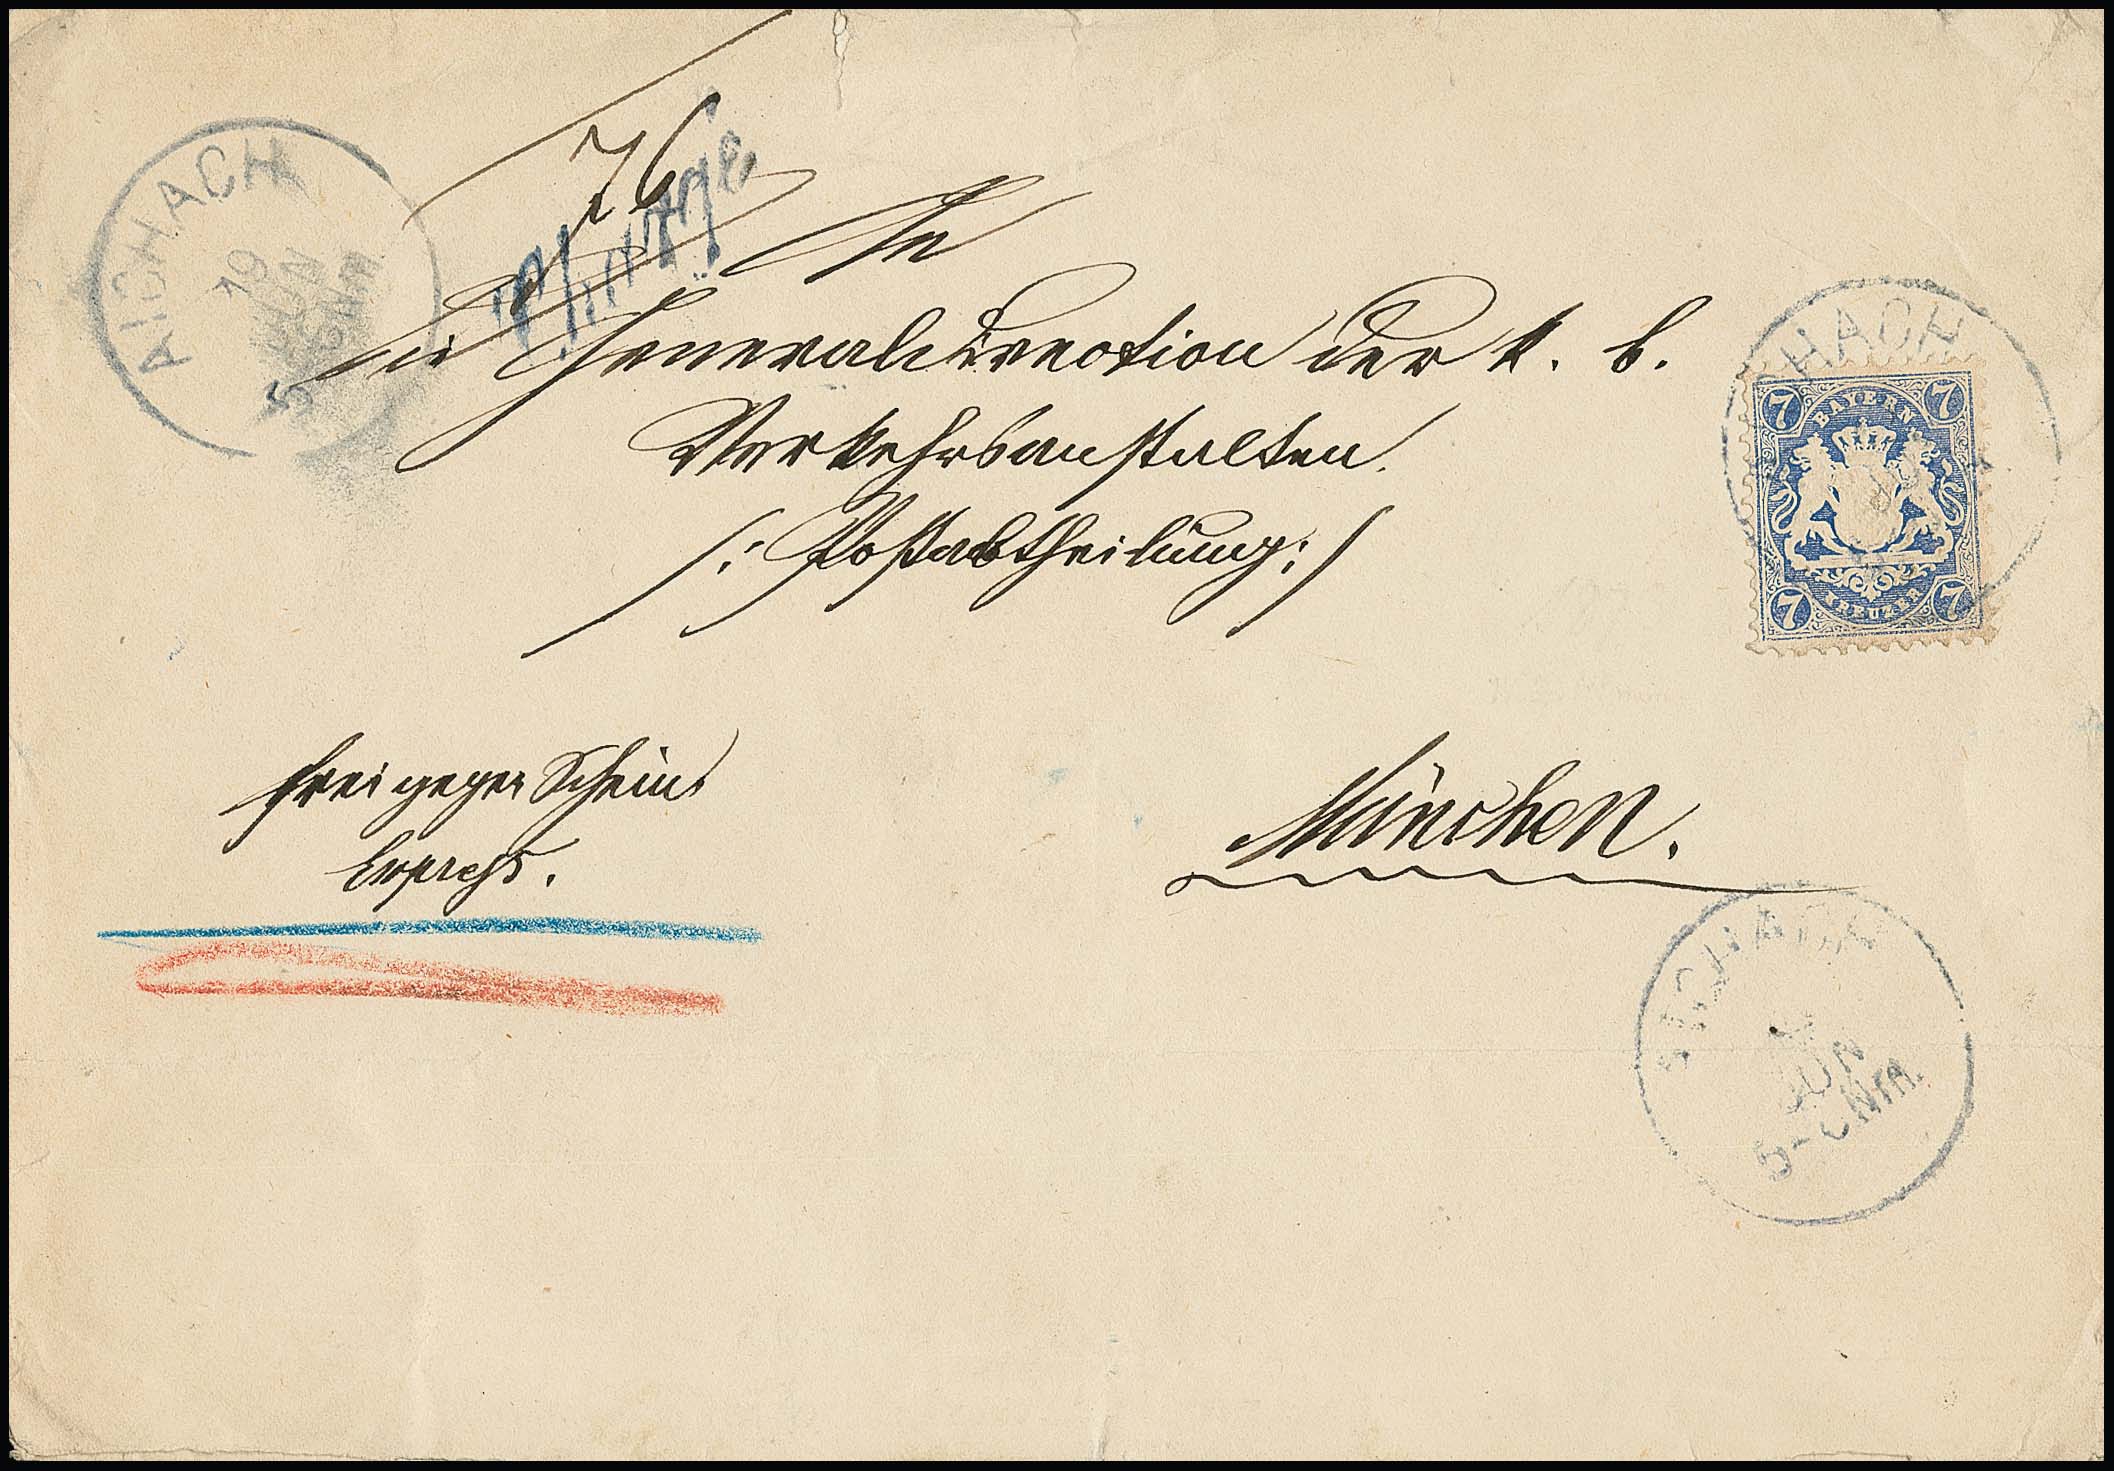 AICHACH
19
JUN
5-6 NM
76
Chargé
An
die Generaldirection der k. b.
Verkehrsanstalten.
/: Postabtheilung :/
AICHACH
7 BAYERN 7
7 KREUZER 7
frei gegen Schein.
Expreß.
München.
AICHACH
JUN
5-6 NM.